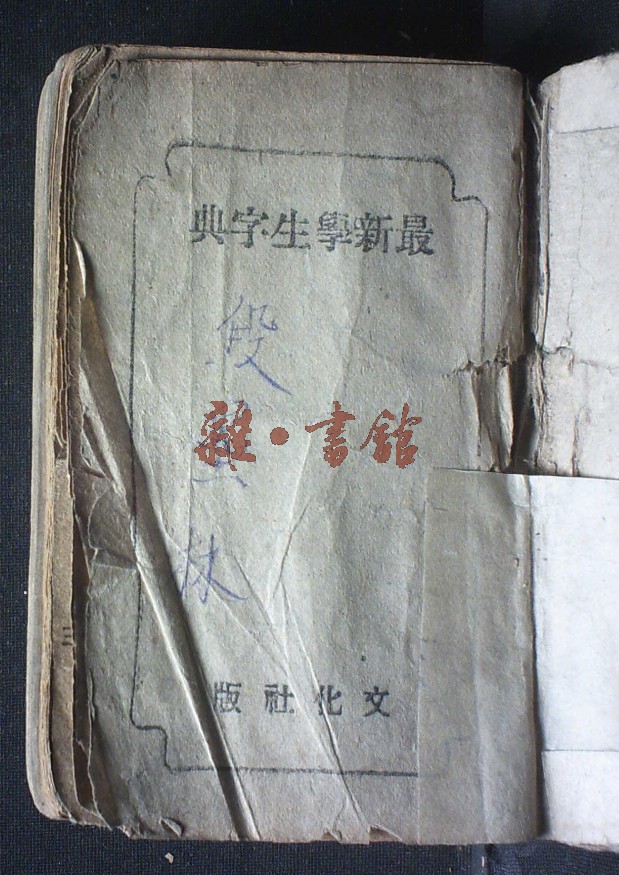 最新學生字典
段
雜·書館
林
文化社版